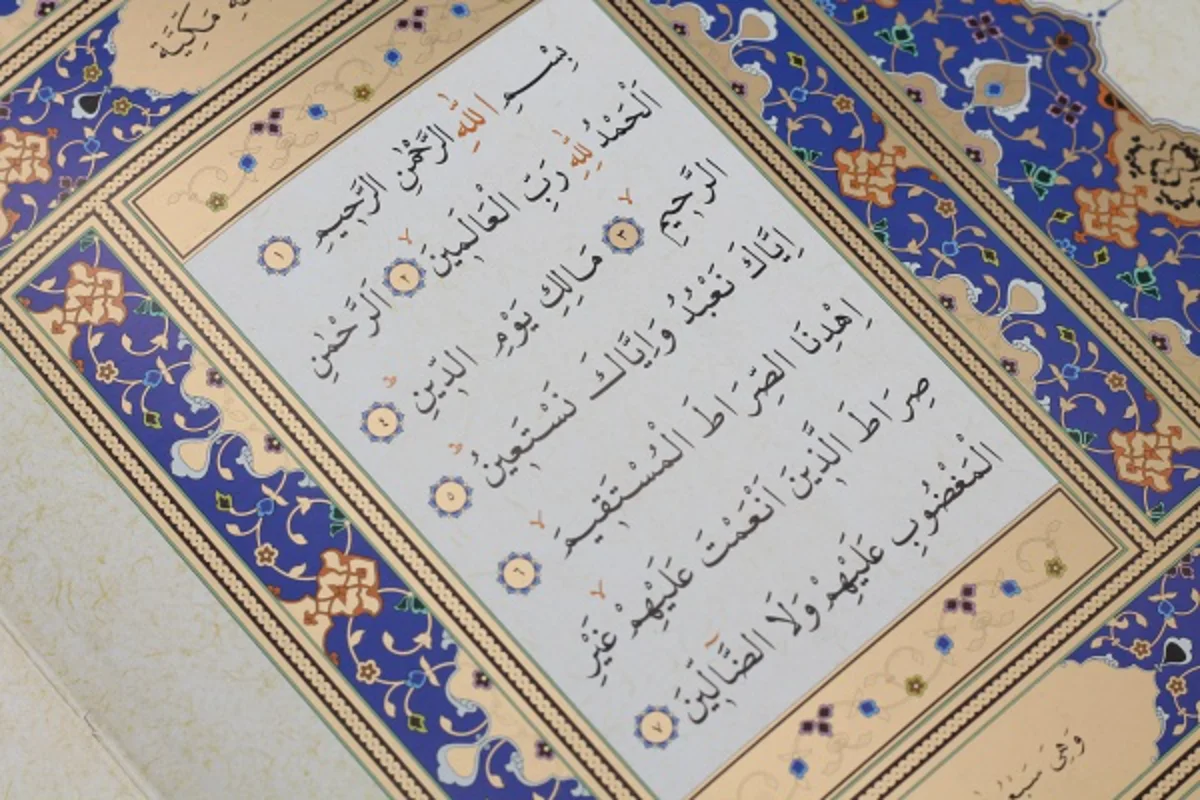 مَكِّيَّة
بِسْمِ اللّٰهِ الرَّحْمٰنِ الرَّحِيمِ ١
اَلْحَمْدُ لِلّٰهِ رَبِّ الْعَالَمِينَ ٢ اَلرَّحْمٰنِ
الرَّحِيمِ ٣ مَالِكِ يَوْمِ الدِّينِ ٤
اِيَّاكَ نَعْبُدُ وَاِيَّاكَ نَسْتَعِينُ ٥
اِهْدِنَا الصِّرَاطَ الْمُسْتَقِيمَ ٦
صِرَاطَ الَّذِينَ اَنْعَمْتَ عَلَيْهِمْ غَيْرِ
الْمَغْضُوبِ عَلَيْهِمْ وَلَا الضَّٓالِّينَ ٧
وَهِىَ سَبْعُ